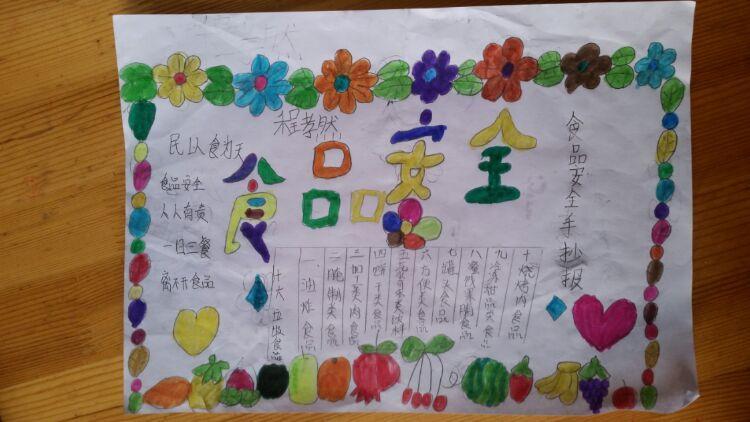 程孝然
食品安全
食品安全手抄报
民以食为天
食品安全
人人有责
一日三餐
离不开食品
十大垃圾食品
一油炸食品
二腌制类食品
三加工类肉食品
四饼干类食品
五汽水可乐类饮料
六方便类食品
七罐头食品
八蜜饯果脯食品
九冷冻甜品类食品
十烧烤肉食品